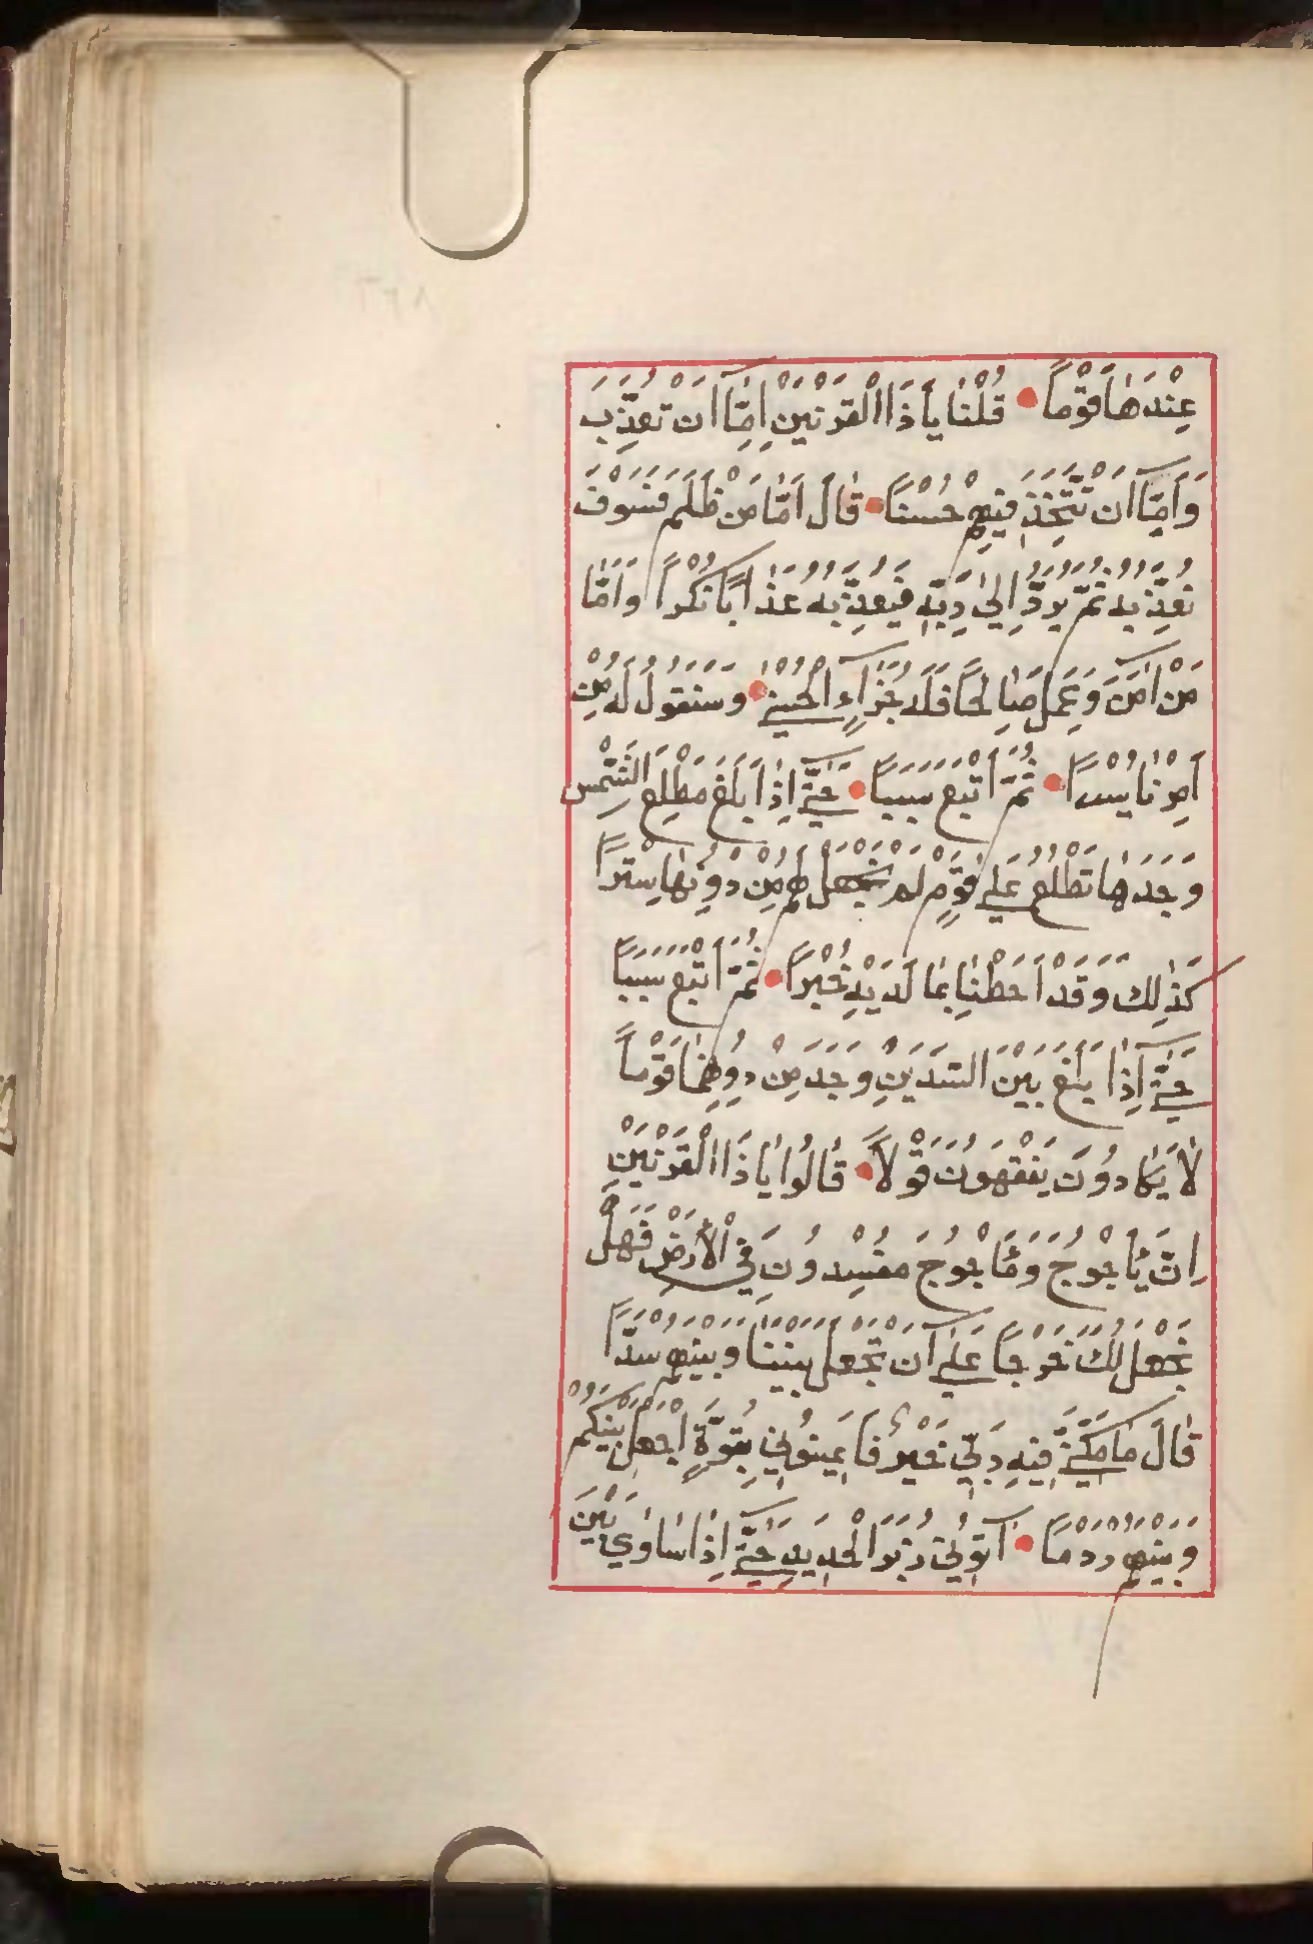 عِنْدَهَا قَوْمًا قُلْنَا يَا ذَا الْقَرْنَيْنِ اِمَّا اَنْ تُعَذِّبَ
وَاِمَّا اَنْ تَتَّخِذَ فِيهِمْ حُسْنًا قَالَ اَمَّا مَنْ ظَلَمَ فَسَوْفَ
نُعَذِّبُهُ ثُمَّ يُرَدُّ اِلٰى رَبِّهِ فَيُعَذِّبُهُ عَذَابًا نُكْرًا وَاَمَّا
مَنْ اٰمَنَ وَعَمِلَ صَالِحًا فَلَهُ جَزَاءٍ الْحُسْنٰى وَسَنَقُولُ لَهُ مِنْ
اَمْرِنَا يُسْرًا ثُمَّ اَتْبَعَ سَبَبًا حَتّٰى اِذَا بَلَغَ مَطْلِعَ الشَّمْسِ
وَجَدَهَا تَطْلُعُ عَلٰى قَوْمٍ لَمْ نَجْعَلْ لَهُمْ مِنْ دُونِهَا سِتْرًا
كَذٰلِكَ وَقَدْ اَحَطْنَا بِمَا لَدَيْهِ خُبْرًا ثُمَّ اَتْبَعَ سَبَبًا
حَتّٰى اِذَا بَلَغَ بَيْنَ السَّدَّيْنِ وَجَدَ مِنْ دُونِهِمَا قَوْمًا
لَا يَكَادُونَ يَفْقَهُونَ قَوْلًا قَالُوا يَا ذَا الْقَرْنَيْنِ
اِنَّ يَأْجُوجَ وَمَأْجُوجَ مُفْسِدُونَ فِي الْاَرْضِ فَهَلْ
نَجْعَلُ لَكَ خَرْجًا عَلٰى اَنْ تَجْعَلَ بَيْنَنَا وَبَيْنَهُمْ سَدًّا
قَالَ مَا مَكَّنِّى فِيهِ رَبِّي خَيْرٌ فَاَعِينُونِي بِقُوَّةٍ اَجْعَلْ بَيْنَكُمْ
وَبَيْنَهُمْ رَدْمًا اٰتُونِي زُبَرَ الْحَدِيدِ حَتّٰى اِذَا سَاوٰى بَيْنَ